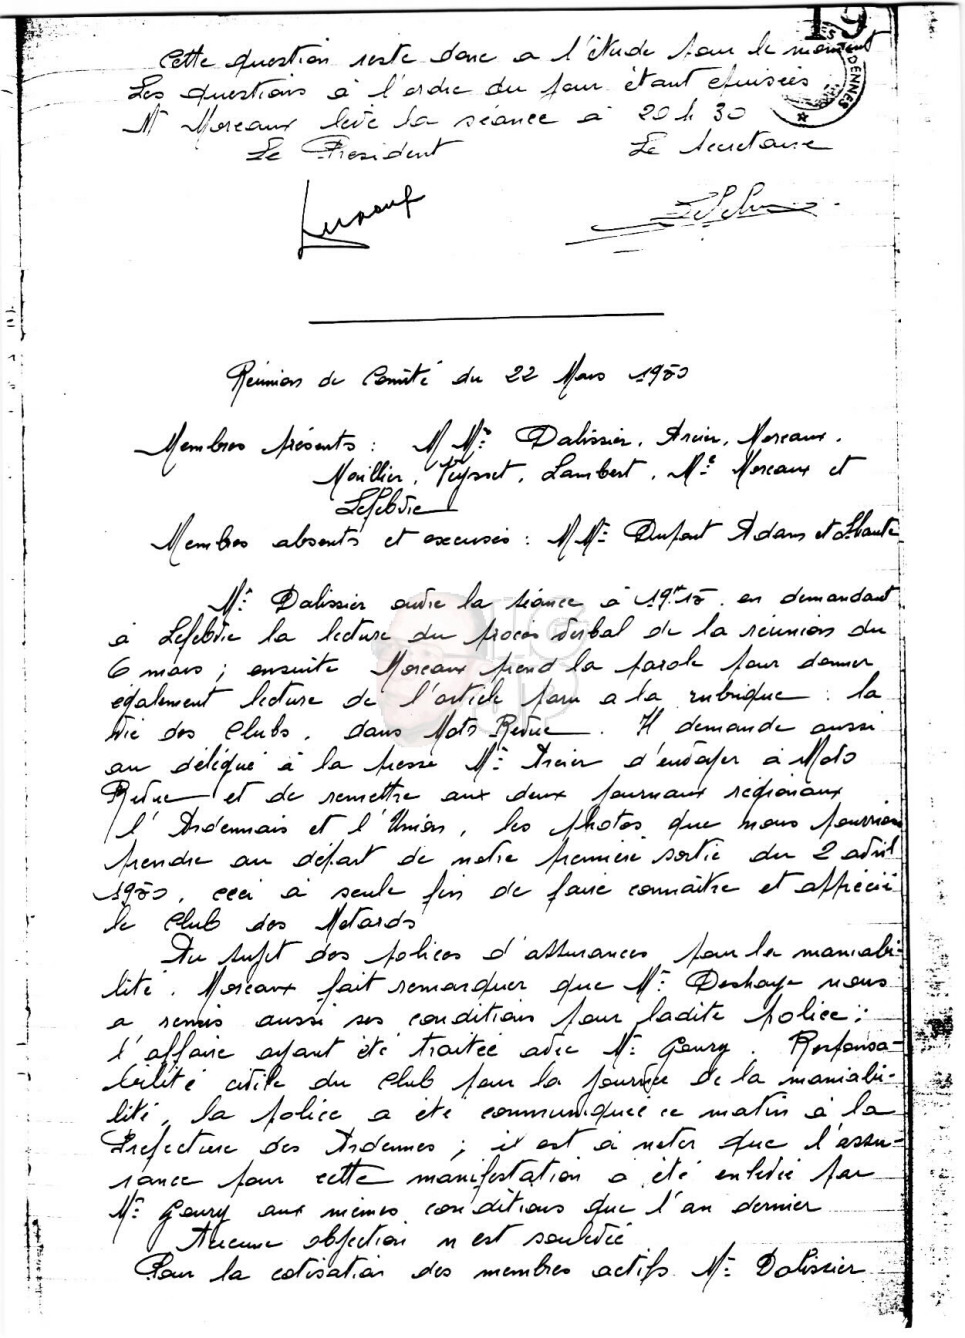 19
DENNES
Cette question reste donc a l'étude pour le moment
Les questions à l'ordre du jour étant épuisées
Mr Moreaux lève la séance à 20 h 30
Le President
Le Secretaire
Réunion de Comité du 22 Mars 1950
Membres présents : M Mrs Dalissier, Arcier, Moreaux,
Lambert, Me Moreaux et
Lefebvre
Membres absents et excusés : M Mrs Dupont Adam et
Mr Dalissier ouvre la séance à 19h15 en demandant
à Lefebvre la lecture du procès verbal de la réunion du
6 mars ; ensuite Moreaux prend la parole pour donner
egalement lecture de l'article paru a la rubrique : la
vie des Clubs, dans Moto Revue. Il demande aussi
au délégué à la presse Mr Arcier d'envoyer à Moto
Revue et de remettre aux deux journaux régionaux
l'Ardennais et l'Union, les photos que nous pourrions
prendre au départ de notre première sortie du 2 avril
1950, ceci à seule fin de faire connaître et apprécié
le Club des Motards
Au sujet des polices d'assurances pour la maniabi-
lité. Moreaux fait remarquer que Mr Deshaye nous
a remis aussi ses conditions pour ladite police ;
l'affaire ayant été traitée avec Mr Goury. Responsa-
bilité civile du Club pour la journée de la maniabi-
lité, la police a été communiquée ce matin à la
Prefecture des Ardennes ; il est à noter que l'assu-
rance pour cette manifestation a été enlevée par
Mr Goury aux mêmes conditions que l'an dernier
Aucune objection n'est soulevée
Pour la cotisation des membres actifs Mr Dalissier